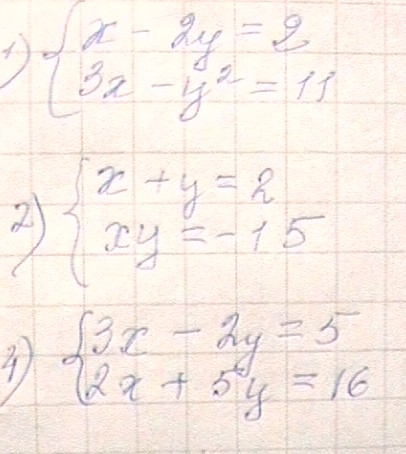 1) { x - 2y = 2
3x - y² = 11
2) { x + y = 2
xy = -15
4) { 3x - 2y = 5
2x + 5y = 16